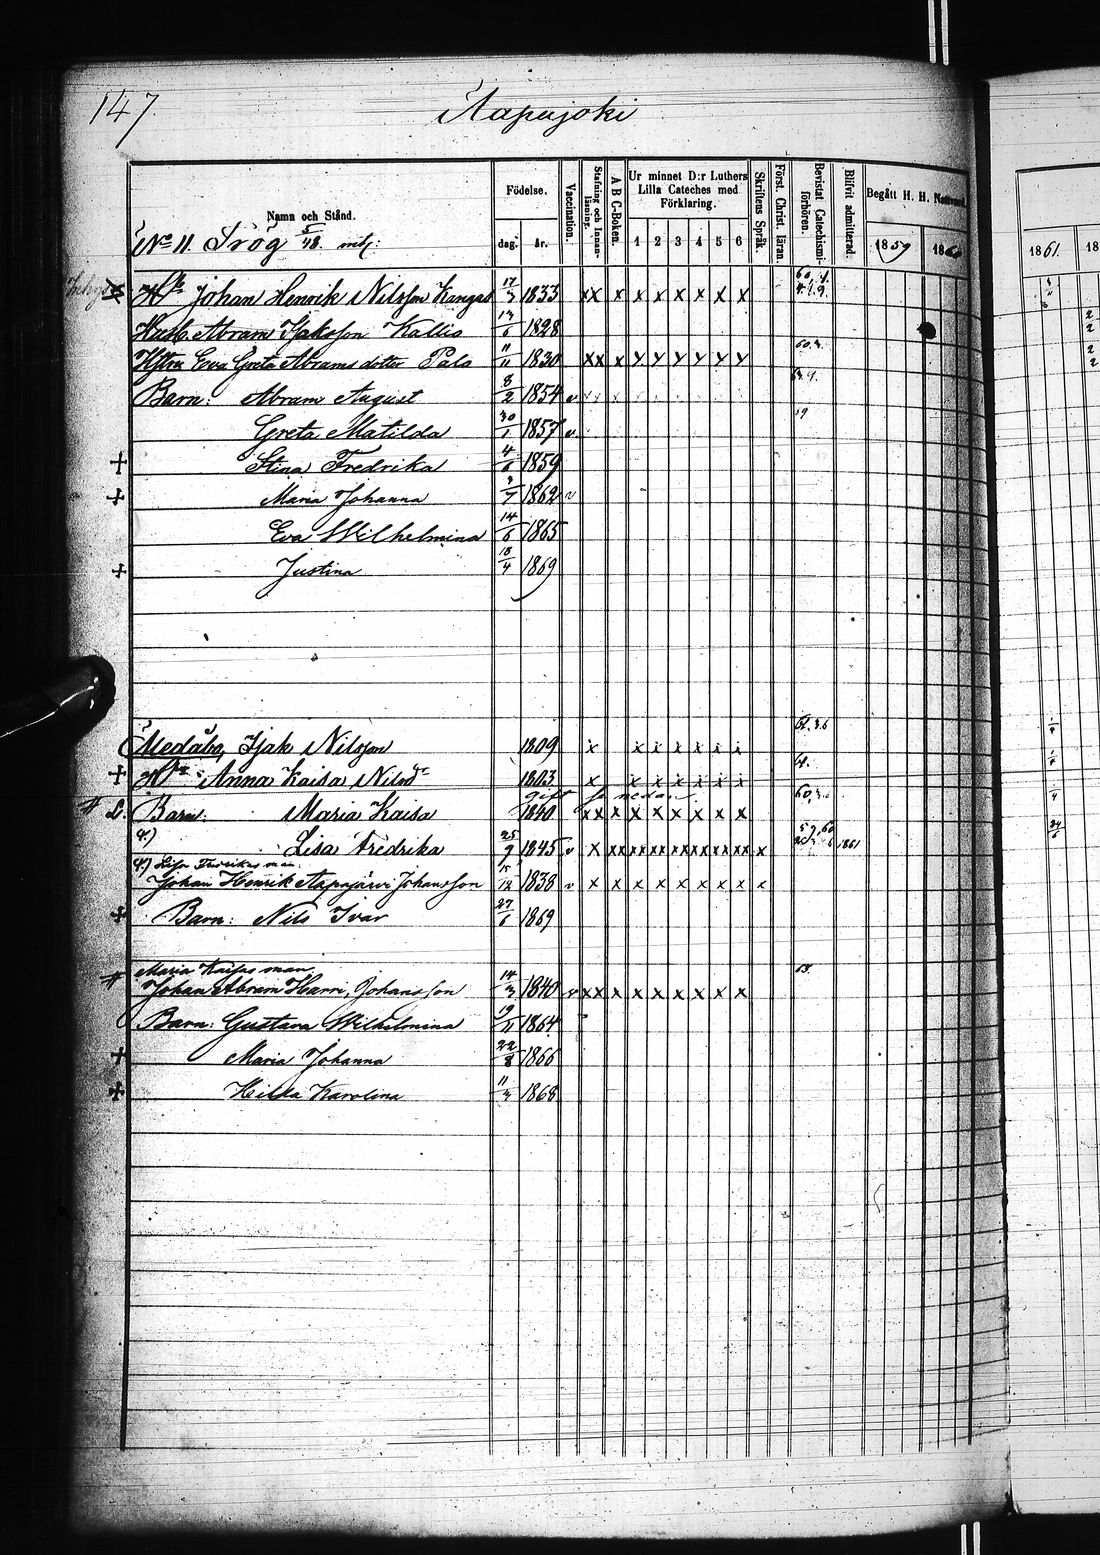 147
Aapajoki
Namn och Stånd.
Födelse.
dag.
år.
Vaccination.
Stafning och Innanläsning.
A B C-Boken.
Ur minnet D:r Luthers Lilla Cateches med Förklaring.
1 2 3 4 5 6
Skriftens Språk.
Först. Christ. läran
Bevistat Catechismiförhören.
Blifvit admitterad.
Begått H. H. Nattvard
1859
1860
1861
No 11. Frög 5/48 mtl:
Johan Henrik Nilsson Kangas 17/3 1833 xx x x x x x x x
Husb. Abram Isaksson Kallio 13/6 1828
Hstru Eva Greta Abramsdotter Palo 11/11 1830 xx x x x x x x x
Barn: Abram August 8/2 1854 v
Greta Matilda 30/1 1857 v 19
+ Stina Fredrika 4/6 1859
+ Maria Johanna 3/7 1862 v
Eva Wilhelmina 14/6 1865
+ Justina 18/4 1869
Medåbo, Isak Nilsson 1809 x x x x x x x
+ Anna Kaisa Nilsdr 1803 x x x x x x x
gift se nedan
# Barn: Maria Kaisa 1840 xx x x x x x x x
4.)
Lisa Fredrika 25/9 1845 v x xx xx xx xx xx xx xx x 1861
4.) Lisa Fredrikas man
Johan Henrik Aapajärvi Johansson 15/12 1838 v x x x x x x x x x
+ Barn: Nils Ivar 27/6 1869
Maria Kaisas man
# Johan Abram Harri, Johansson 14/3 1840 v xx x x x x x x x
Barn: Gustava Wilhelmina 19/11 1864
+ Maria Johanna 22/8 1866
+ Hilda Karolina 11/3 1868